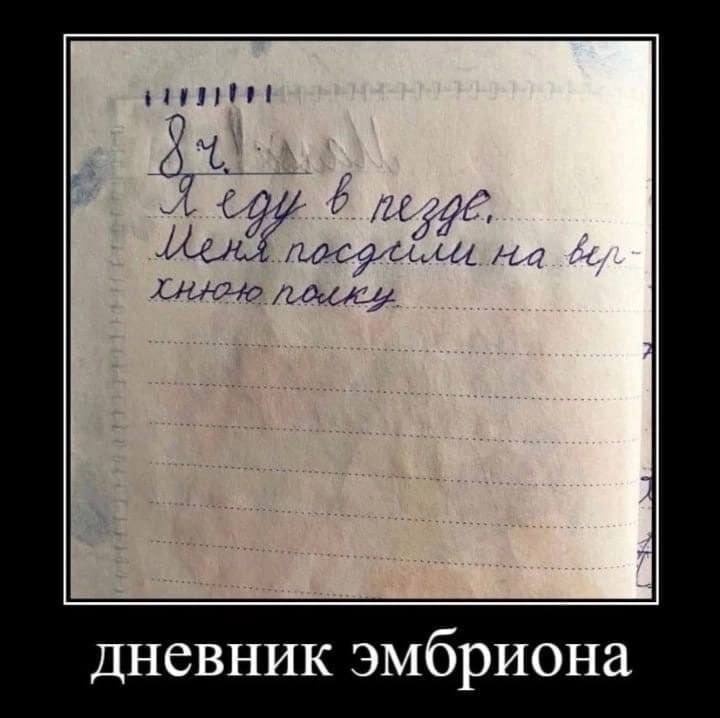 8 ч.
Я еду в пезде.
Меня посдили на вер-
хнюю полку
дневник эмбриона